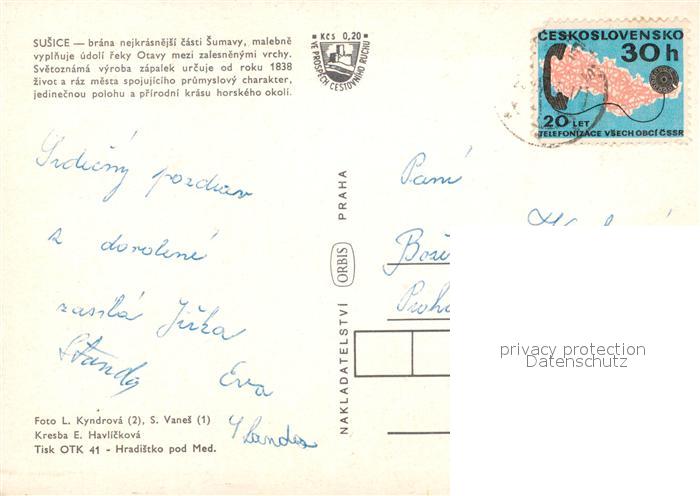 SUŠICE — brána nejkrásnější části Šumavy, malebně
vyplňuje údolí řeky Otavy mezi zalesněnými vrchy.
Světoznámá výroba zápalek určuje od roku 1838
život a ráz města spojujícího průmyslový charakter,
jedinečnou polohu a přírodní krásu horského okolí.
Kčs 0,20
VE PROSPĚCH CESTOVNÍHO RUCHU
ČESKOSLOVENSKO
30 h
20 LET
TELEFONIZACE VŠECH OBCÍ ČSSR
Srdečný pozdrav
z dovolené
zasílá Jirka
Standa Eva
Standa
Paní
Bože
NAKLADATELSTVÍ ORBIS PRAHA
privacy protection
Datenschutz
Foto L. Kyndrová (2), S. Vaneš (1)
Kresba E. Havlíčková
Tisk OTK 41 - Hradištko pod Med.